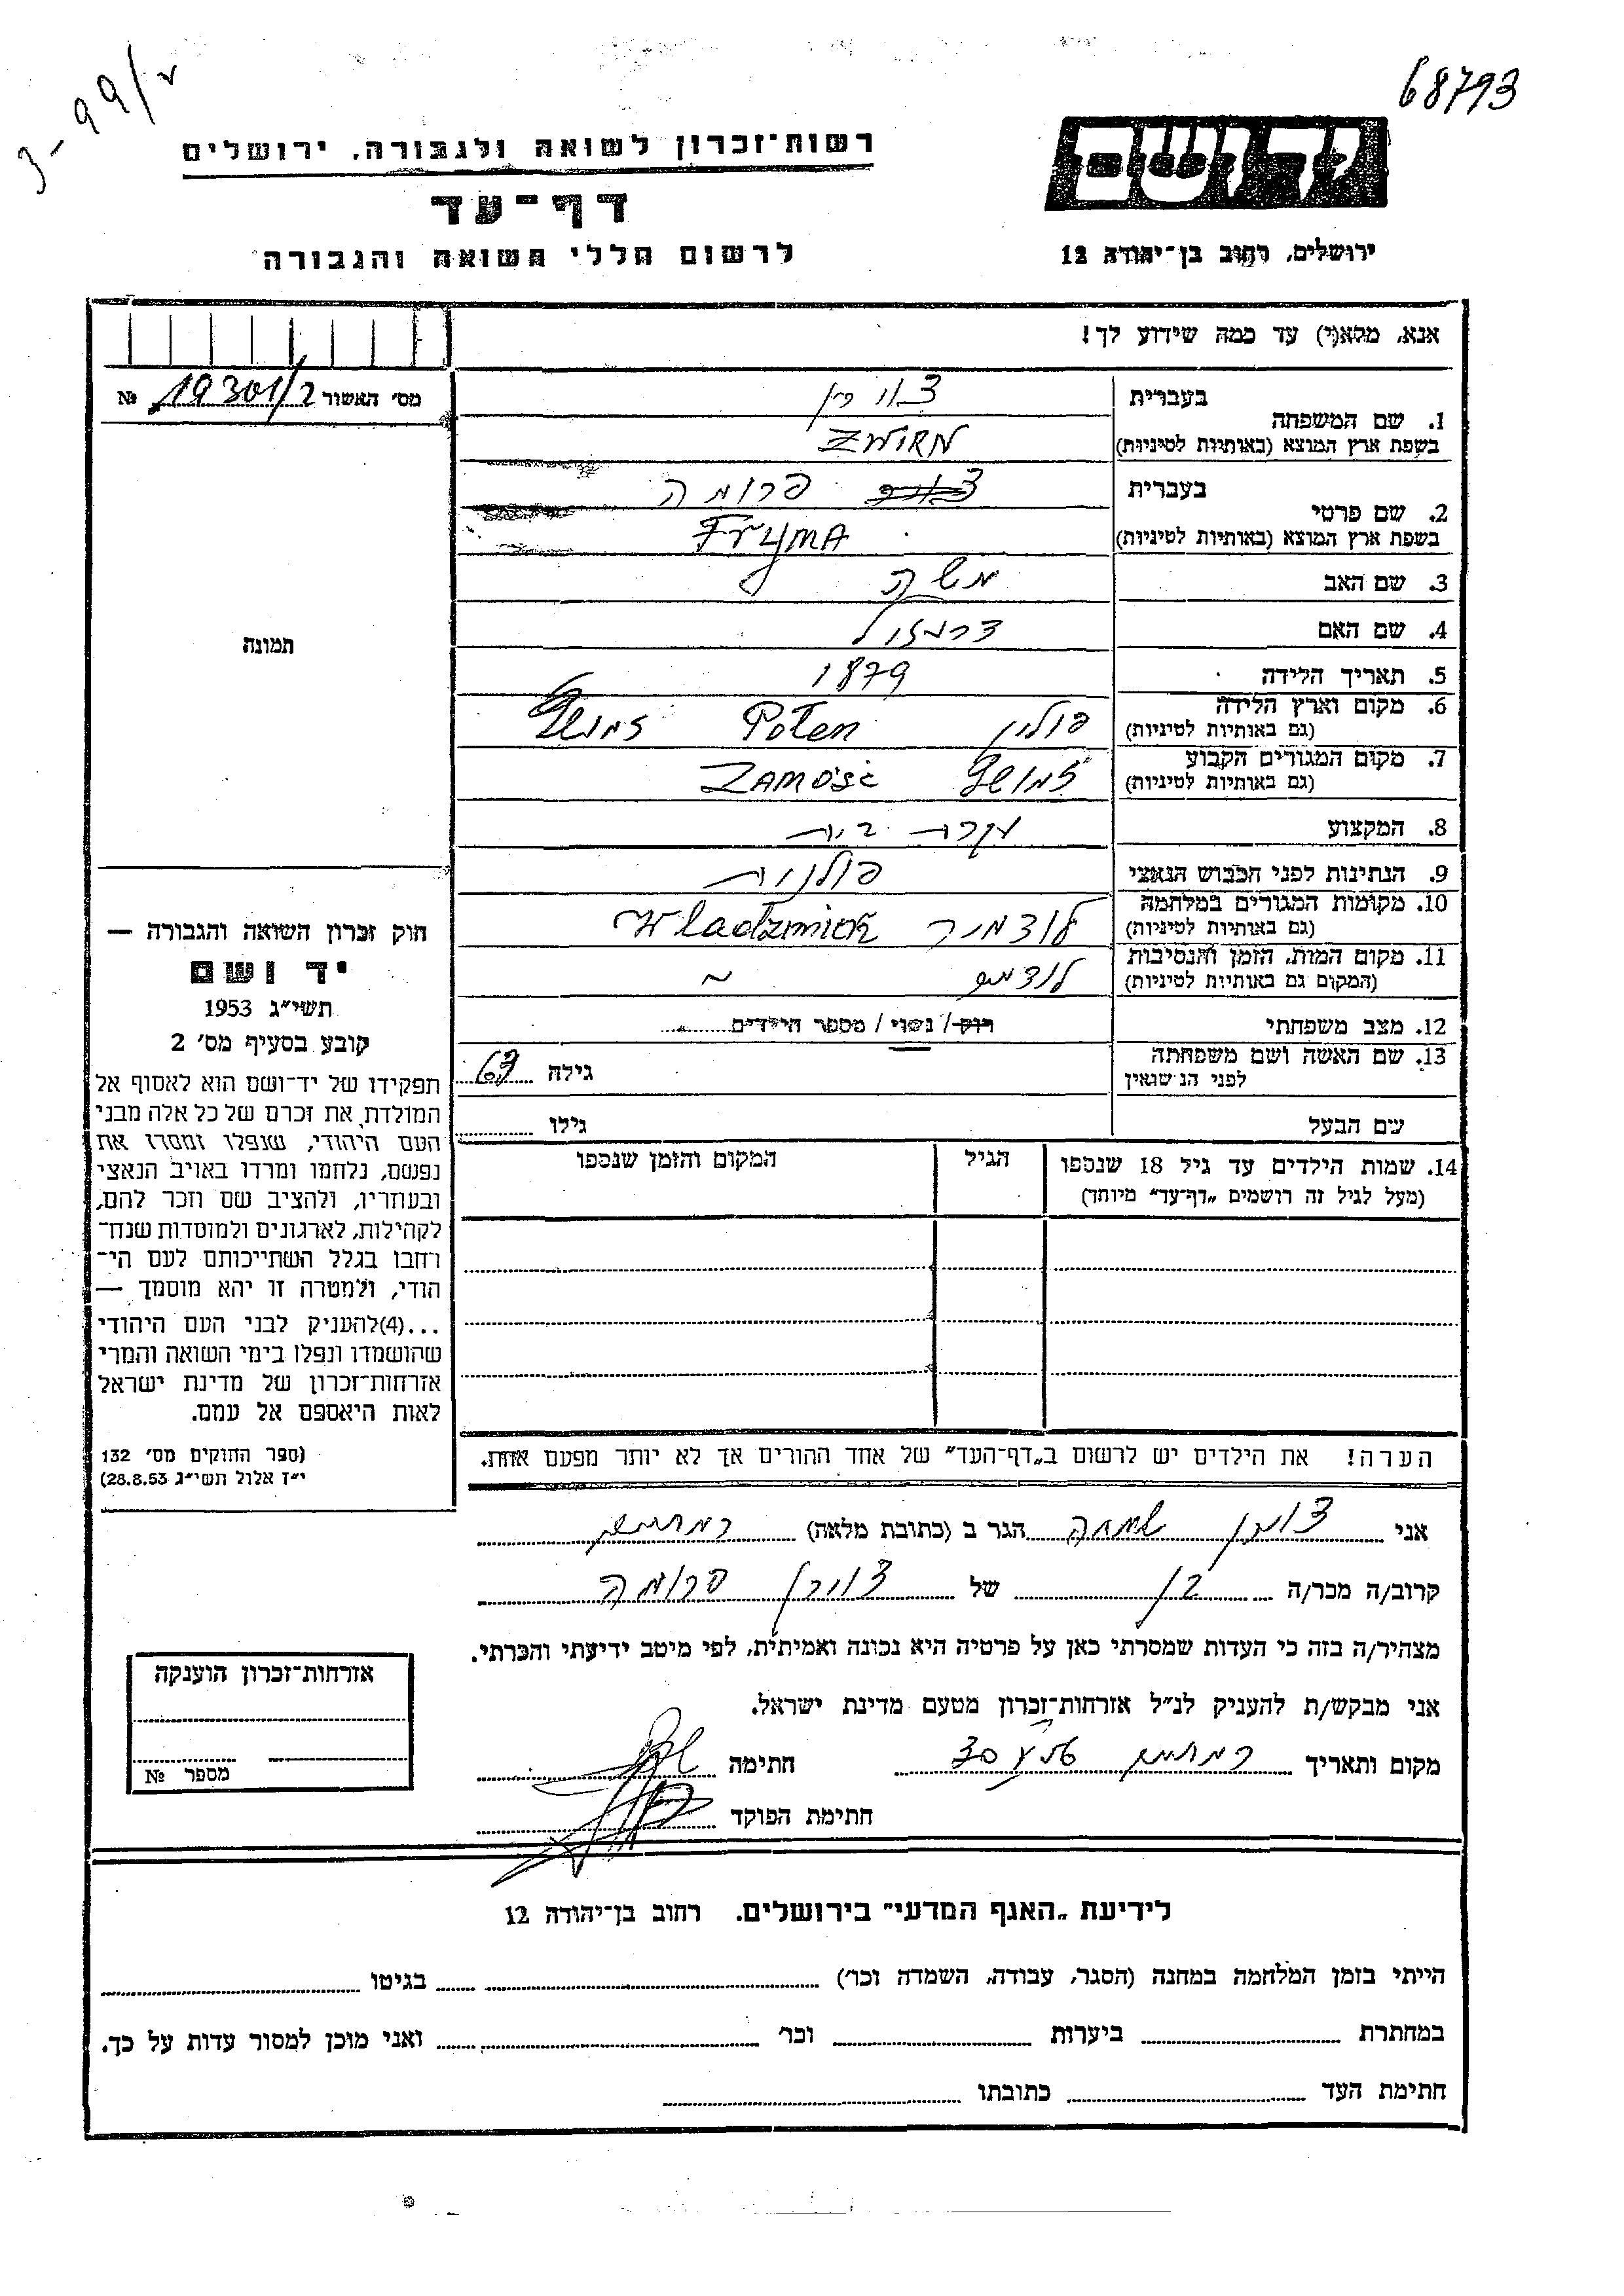 68793
ידושם
ירושלים, רחוב בן־יהודה 12
רשות־זכרון לשואה ולגבורה, ירושלים
דף־עד
לרשום חללי השואה והגבורה
אנא, מלא(י) עד כמה שידוע לך!
מס׳ האשור № 19301/2
תמונה
1. שם המשפחה
בעברית צוירן
בשפת ארץ המוצא (באותיות לטיניות) ZWIRN
2. שם פרטי
בעברית פרומה
בשפת ארץ המוצא (באותיות לטיניות) FryMA
3. שם האב משה
4. שם האם
5. תאריך הלידה 1879
6. מקום וארץ הלידה
(גם באותיות לטיניות) פולין Polen
7. מקום המגורים הקבוע
(גם באותיות לטיניות) זמושץ ZAMOŚĆ
8. המקצוע עקרת בית
9. הנתינות לפני הכבוש הנאצי פולנית
10. מקומות המגורים במלחמה
(גם באותיות לטיניות) לודמיר
11. מקום המות, הזמן והנסיבות
(המקום גם באותיות לטיניות)
12. מצב משפחתי רוק / נשוי / מספר הילדים
13. שם האשה ושם משפחתה
לפני הנישואין גילה 63
שם הבעל גילו
14. שמות הילדים עד גיל 18 שנספו
(מעל לגיל זה רושמים „דף־עד״ מיוחד)
הגיל
המקום והזמן שנספו
הערה! את הילדים יש לרשום ב„דף־העד״ של אחד ההורים אך לא יותר מפעם אחת.
חוק זכרון השואה והגבורה —
יד ושם
תשי״ג 1953
קובע בסעיף מס׳ 2
תפקידו של יד־ושם הוא לאסוף אל
המולדת את זכרם של כל אלה מבני
העם היהודי, שנפלו ומסרו את
נפשם, נלחמו ומרדו באויב הנאצי
ובעוזריו, ולהציב שם וזכר להם,
לקהילות, לארגונים ולמוסדות שנח־
רבו בגלל השתייכותם לעם הי־
הודי, ולמטרה זו יהא מוסמך —
...(4) להעניק לבני העם היהודי
שהושמדו ונפלו בימי השואה והמרי
אזרחות־זכרון של מדינת ישראל
לאות היאספם אל עמם.
(ספר החוקים מס׳ 132
י״ז אלול תשי״ג 28.8.53)
אני צוירן שמחה הגר ב (כתובת מלאה)
קרוב/ה מכר/ה בן של צוירן פרומה
מצהיר/ה בזה כי העדות שמסרתי כאן על פרטיה היא נכונה ואמיתית, לפי מיטב ידיעתי והכרתי.
אני מבקש/ת להעניק לנ״ל אזרחות־זכרון מטעם מדינת ישראל.
מקום ותאריך חתימה
חתימת הפוקד
אזרחות־זכרון הוענקה
מספר №
לידיעת „האגף המדעי״ בירושלים. רחוב בן־יהודה 12
הייתי בזמן המלחמה במחנה (הסגר, עבודה, השמדה וכו׳) בגיטו
במחתרת ביערות וכו׳ ואני מוכן למסור עדות על כך.
חתימת העד כתובתו